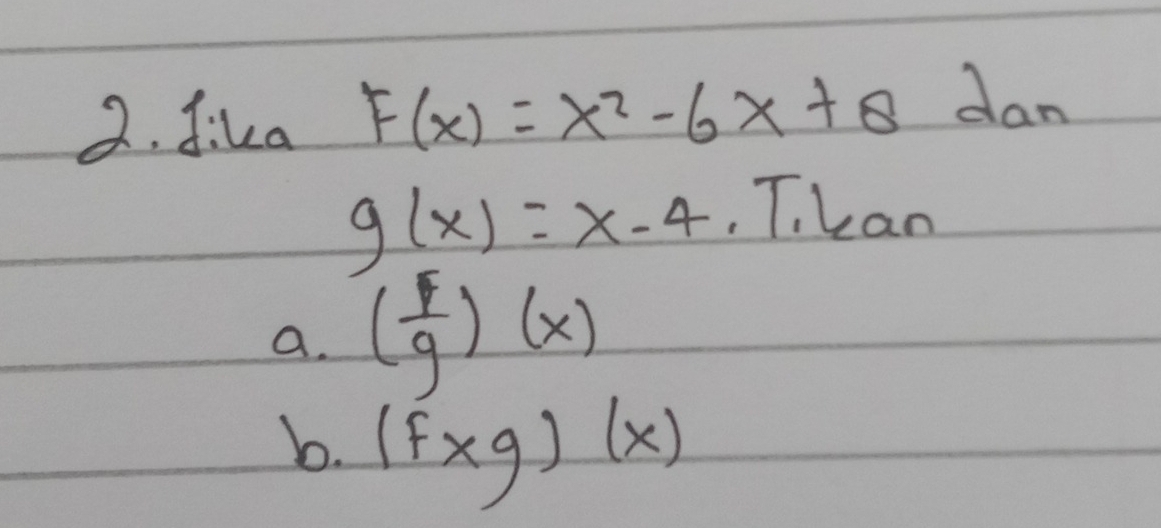 2. Jika F(x) = x² - 6x + 8 dan
g(x) = x - 4. Tikan
a. (F/g) (x)
b. (F x g) (x)